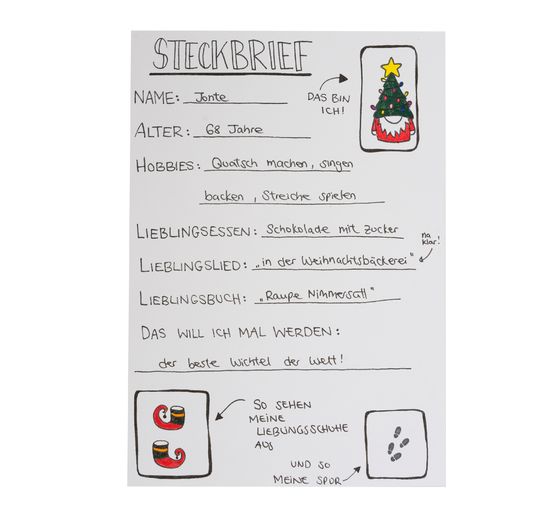 STECKBRIEF
NAME: Jonte
DAS BIN
ICH!
ALTER: 68 Jahre
HOBBIES: Quatsch machen, singen
backen, Streiche spielen
LIEBLINGSESSEN: Schokolade mit Zucker
na
klar!
LIEBLINGSLIED: „in der Weihnachtsbäckerei"
LIEBLINGSBUCH: „Raupe Nimmersatt"
DAS WILL ICH MAL WERDEN:
der beste Wichtel der Welt!
SO SEHEN
MEINE
LIEBLINGSSCHUHE
AUS
UND SO
MEINE SPUR